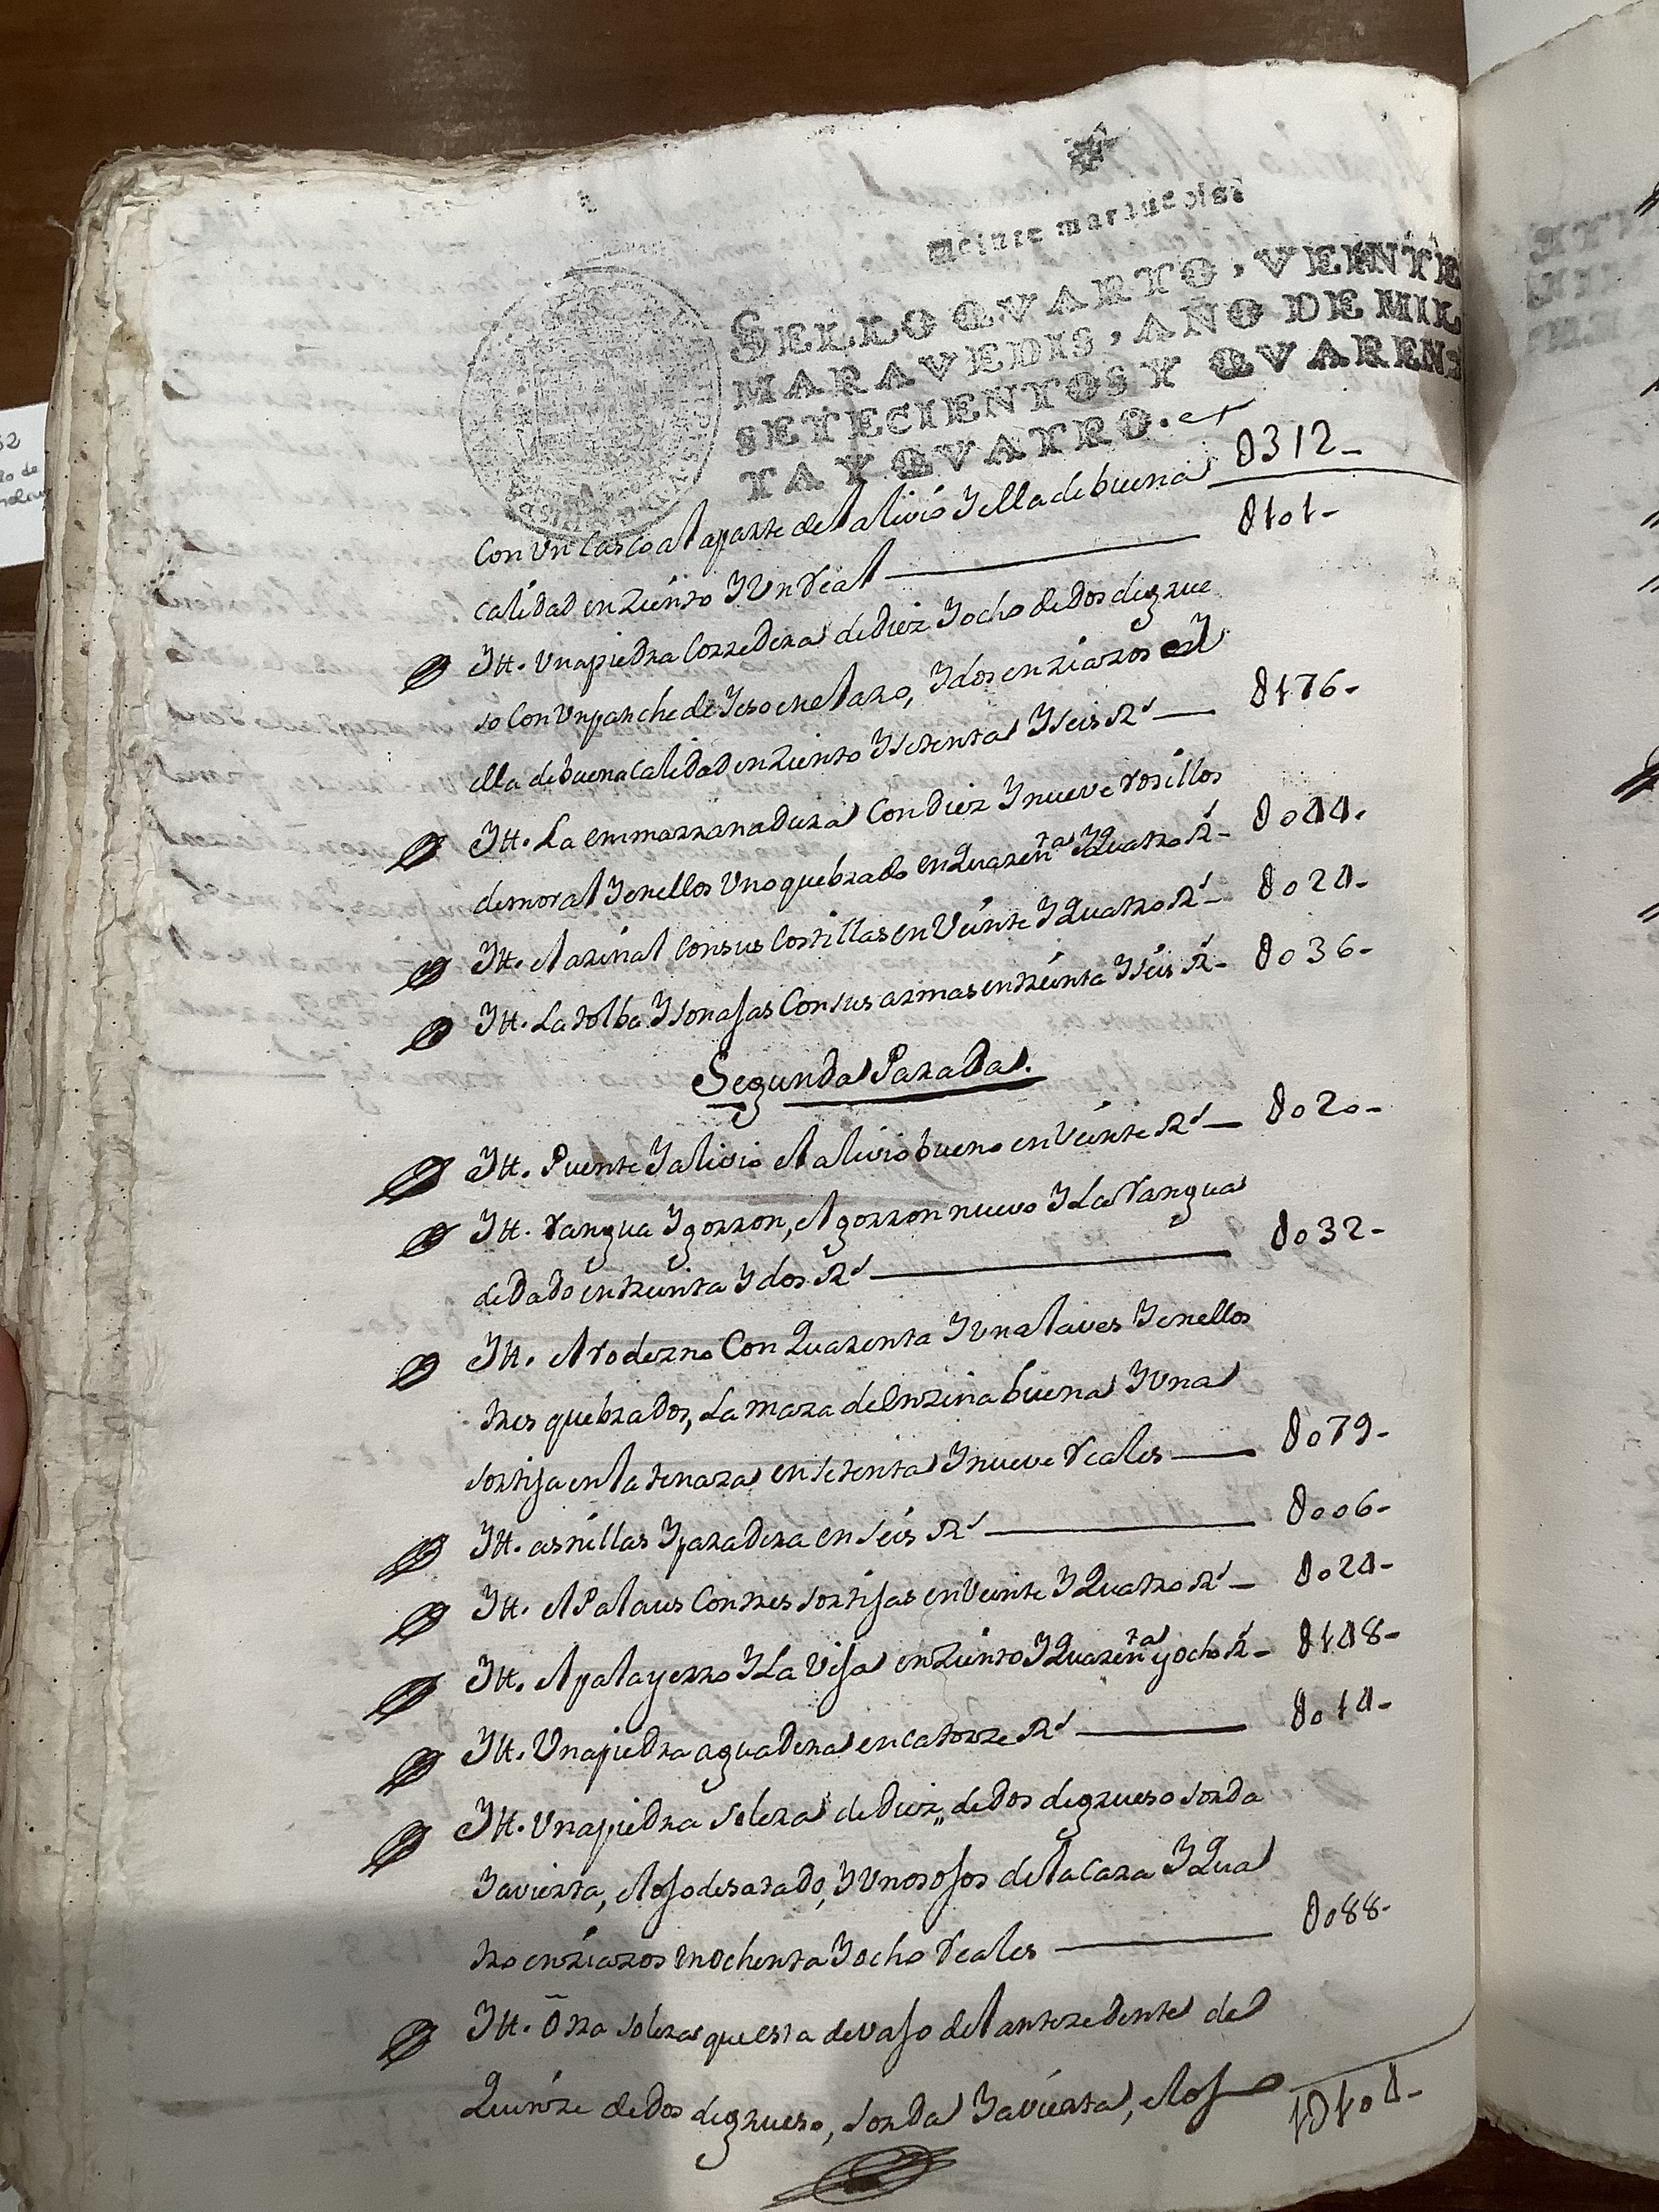 Veinte maravedis.
SELLO QVARTO, VEINTE
MARAVEDIS, AÑO DE MIL
SETECIENTOS Y QVAREN-
TA Y QVATRO.
0312-
Con Un Casco a la parte del alivio Y ella de buena
Calidad en Ziento Y Un Real — 0101-
Itt. Una piedra Corredera de Diez Y ocho de Dos de grue
so Con Un parche de Yeso en el aro, Y dos enziazos en
ella de buena Calidad en Ziento Y setenta Y seis Rs — 0176-
Itt. La emmarranadura Con Diez Y nueve rosillos
de moral Y en ellos Uno quebrado en Quarenta Y Quatro Rs - 0044.
Itt. el arinal Con sus Costillas en Veinte Y Quatro Rs - 0024-
Itt. La tolba Y sonajas Con sus armas en treinta Y seis Rs - 0036-
Segunda Parada.
Itt. Puente Y alivio el alivio bueno en Veinte Rs — 0020-
Itt. rangua Y gorron, el gorron nuevo Y La rangua
de Dado en treinta Y dos Rs — 0032-
Itt. el rodezno Con Quarenta Y Un alaves Y en ellos
tres quebrados, La maza de Enzina buena Y Una
sortija en la tenaza en setenta Y nueve reales — 0079-
Itt. asnillas Y paradera en seis Rs — 0006-
Itt. el Palaus Con tres sortijas en Veinte Y Quatro Rs — 0024-
Itt. el palayerro Y La Vija en Ziento Y Quarenta y ocho Rs - 0148-
Itt. Una piedra aguadera en catorze Rs — 0014-
Itt. Una piedra solera de Diez,, de Dos de grueso sorda
Y avierta, el ojo desatado, Y Unos ojos de la Cara Y Qua
tro enziazos en ochenta Y ocho reales — 0088-
Itt. Otra solera que esta devajo del antezedente de
Quinze de Dos de grueso, sorda Y avierta, el ojo
1U104-